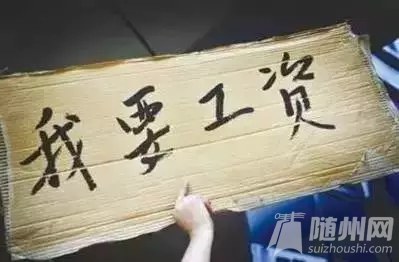 我要工资
随州网
suizhoushi.com